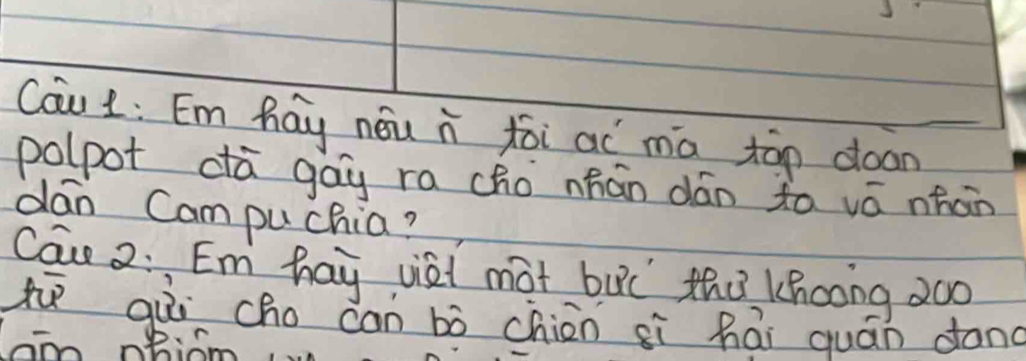 Câu 1: Em hãy nêu ~ tội ác mà tập đoàn
polpot đã gây ra cho nhân dân ta và nhân
dân Campuchia?
Câu 2: Em hãy viết một bức thư khoảng 200
từ gửi cho cán bộ chiến sĩ hải quân đang
làm nhiệm